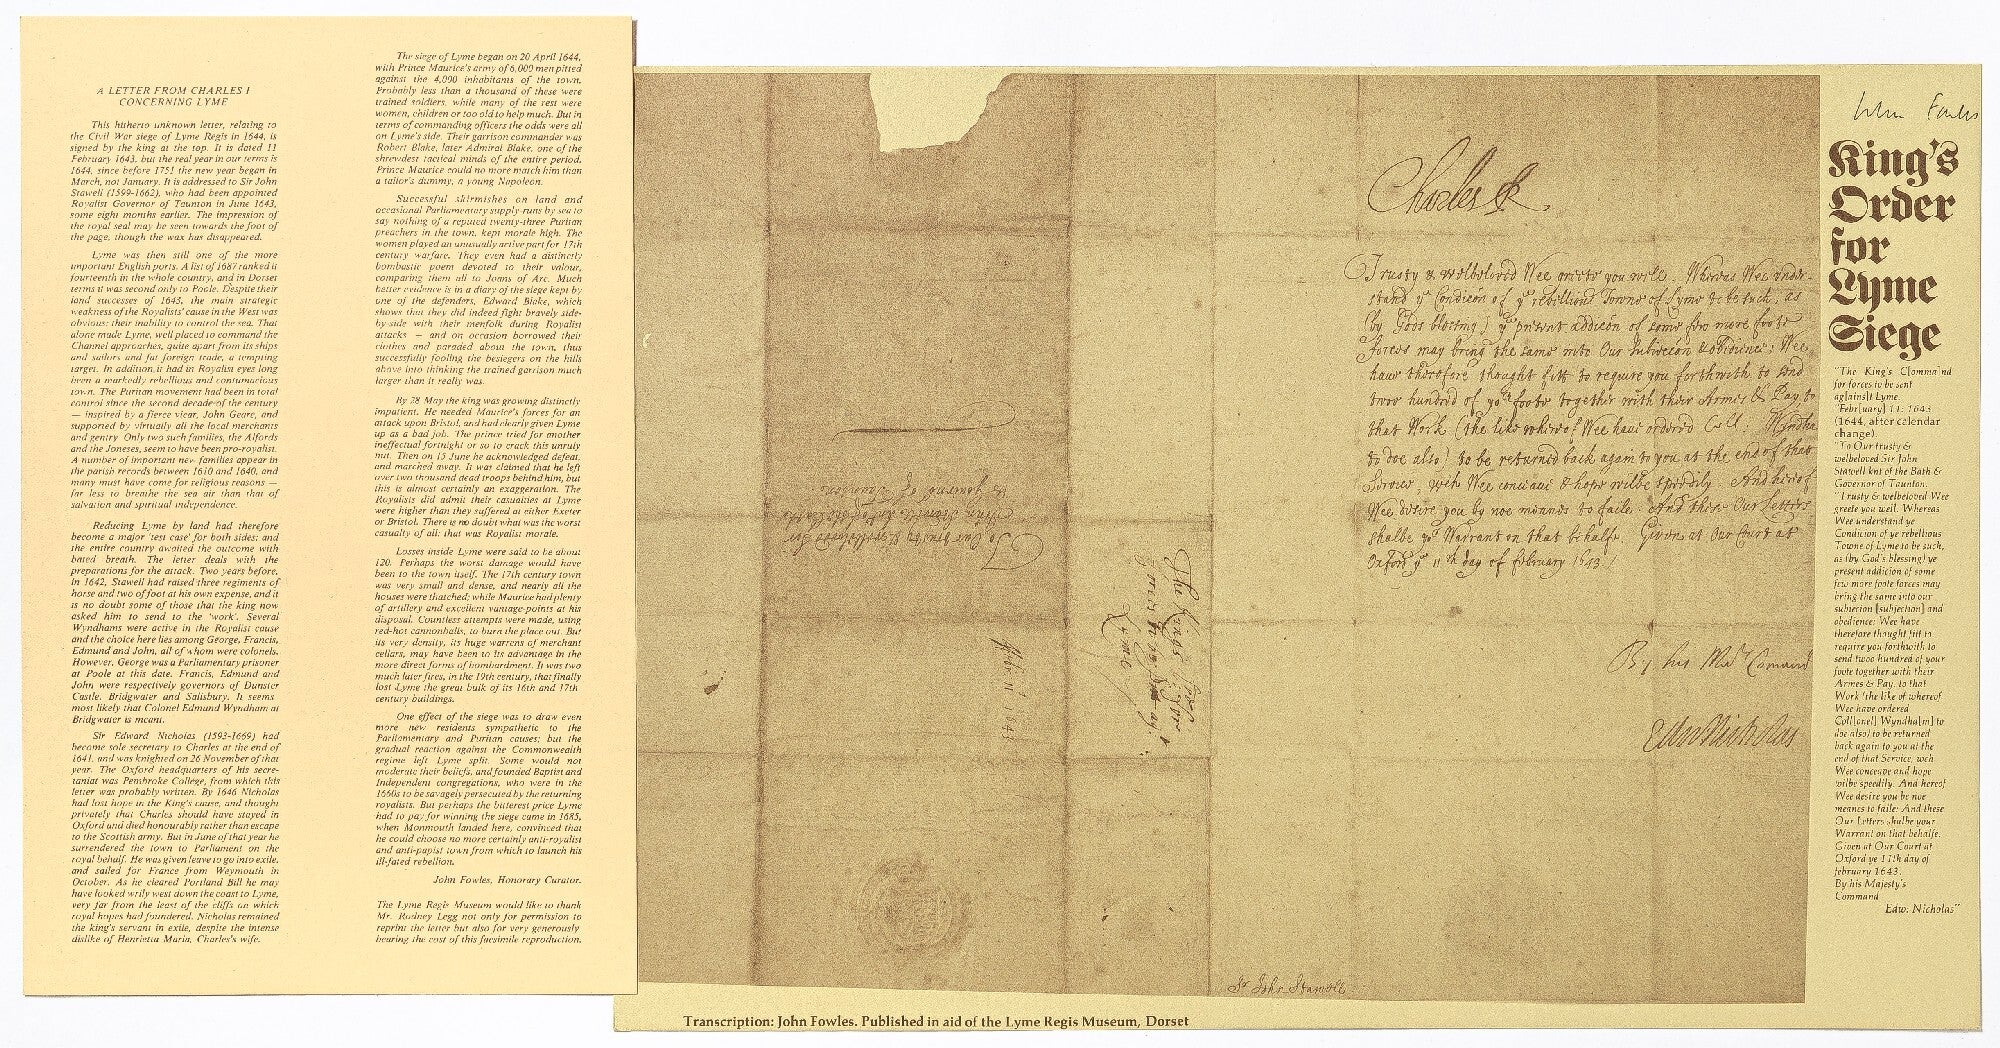 A LETTER FROM CHARLES I
CONCERNING LYME
This hitherto unknown letter, relating to
the Civil War siege of Lyme Regis in 1644, is
signed by the king at the top. It is dated 11
February 1643, but the real year in our terms is
1644, since before 1751 the new year began in
March, not January. It is addressed to Sir John
Stawell (1599-1662), who had been appointed
Royalist Governor of Taunton in June 1643,
some eight months earlier. The impression of
the royal seal may be seen towards the foot of
the page, though the wax has disappeared.
Lyme was then still one of the more
important English ports. A list of 1687 ranked it
fourteenth in the whole country, and in Dorset
terms it was second only to Poole. Despite their
land successes of 1643, the main strategic
weakness of the Royalists' cause in the West was
obvious: their inability to control the sea. That
alone made Lyme, well placed to command the
Channel approaches, quite apart from its ships
and sailors and fat foreign trade, a tempting
target. In addition, it had in Royalist eyes long
been a markedly rebellious and contumacious
town. The Puritan movement had been in total
control since the second decade of the century
— inspired by a fierce vicar, John Geare, and
supported by virtually all the local merchants
and gentry. Only two such families, the Alfords
and the Joneses, seem to have been pro-royalist.
A number of important new families appear in
the parish records between 1610 and 1640, and
many must have come for religious reasons —
far less to breathe the sea air than that of
salvation and spiritual independence.
Reducing Lyme by land had therefore
become a major 'test case' for both sides; and
the entire country awaited the outcome with
bated breath. The letter deals with the
preparations for the attack. Two years before,
in 1642, Stawell had raised three regiments of
horse and two of foot at his own expense, and it
is no doubt some of those that the king now
asked him to send to the 'work'. Several
Wyndhams were active in the Royalist cause
and the choice here lies among George, Francis,
Edmund and John, all of whom were colonels.
However, George was a Parliamentary prisoner
at Poole at this date. Francis, Edmund and
John were respectively governors of Dunster
Castle, Bridgwater and Salisbury. It seems
most likely that Colonel Edmund Wyndham at
Bridgwater is meant.
Sir Edward Nicholas (1593-1669) had
become sole secretary to Charles at the end of
1641, and was knighted on 26 November of that
year. The Oxford headquarters of his secre-
tariat was Pembroke College, from which this
letter was probably written. By 1646 Nicholas
had lost hope in the King's cause, and thought
privately that Charles should have stayed in
Oxford and died honourably rather than escape
to the Scottish army. But in June of that year he
surrendered the town to Parliament on the
royal behalf. He was given leave to go into exile,
and sailed for France from Weymouth in
October. As he cleared Portland Bill he may
have looked wrily west down the coast to Lyme,
very far from the least of the cliffs on which
royal hopes had foundered. Nicholas remained
the king's servant in exile, despite the intense
dislike of Henrietta Maria, Charles's wife.
The siege of Lyme began on 20 April 1644,
with Prince Maurice's army of 6,000 men pitted
against the 4,000 inhabitants of the town.
Probably less than a thousand of these were
trained soldiers, while many of the rest were
women, children or too old to help much. But in
terms of commanding officers the odds were all
on Lyme's side. Their garrison commander was
Robert Blake, later Admiral Blake, one of the
shrewdest tactical minds of the entire period.
Prince Maurice could no more match him than
a tailor's dummy, a young Napoleon.
Successful skirmishes on land and
occasional Parliamentary supply-runs by sea to
say nothing of a reputed twenty-three Puritan
preachers in the town, kept morale high. The
women played an unusually active part for 17th
century warfare. They even had a distinctly
bombastic poem devoted to their valour,
comparing them all to Joans of Arc. Much
better evidence is in a diary of the siege kept by
one of the defenders, Edward Blake, which
shows that they did indeed fight bravely side-
by-side with their menfolk during Royalist
attacks — and on occasion borrowed their
clothes and paraded about the town, thus
successfully fooling the besiegers on the hills
above into thinking the trained garrison much
larger than it really was.
By 28 May the king was growing distinctly
impatient. He needed Maurice's forces for an
attack upon Bristol, and had clearly given Lyme
up as a bad job. The prince tried for another
ineffectual fortnight or so to crack this unruly
nut. Then on 15 June he acknowledged defeat,
and marched away. It was claimed that he left
over two thousand dead troops behind him, but
this is almost certainly an exaggeration. The
Royalists did admit their casualties at Lyme
were higher than they suffered at either Exeter
or Bristol. There is no doubt what was the worst
casualty of all: that was Royalist morale.
Losses inside Lyme were said to be about
120. Perhaps the worst damage would have
been to the town itself. The 17th century town
was very small and dense, and nearly all the
houses were thatched; while Maurice had plenty
of artillery and excellent vantage-points at his
disposal. Countless attempts were made, using
red-hot cannonballs, to burn the place out. But
its very density, its huge warrens of merchant
cellars, may have been to its advantage in the
more direct forms of bombardment. It was two
much later fires, in the 19th century, that finally
lost Lyme the great bulk of its 16th and 17th
century buildings.
One effect of the siege was to draw even
more new residents sympathetic to the
Parliamentary and Puritan causes; but the
gradual reaction against the Commonwealth
regime left Lyme split. Some would not
moderate their beliefs, and founded Baptist and
Independent congregations, who were in the
1660s to be savagely persecuted by the returning
royalists. But perhaps the bitterest price Lyme
had to pay for winning the siege came in 1685,
when Monmouth landed here, convinced that
he could choose no more certainly anti-royalist
and anti-papist town from which to launch his
ill-fated rebellion.
John Fowles, Honorary Curator.
The Lyme Regis Museum would like to thank
Mr. Rodney Legg not only for permission to
reprint the letter but also for very generously
bearing the cost of this facsimile reproduction.
Charles R
Trusty & welbeloved Wee greete you well. Whereas Wee under-
stand ye Condicion of ye rebellious Towne of Lyme to be such, as
(by Gods blessing) ye present addicion of some few more foote
forces may bring the same into Our subieccon & obedience; Wee
have therefore thought fitt to require you forthwith to send
twoe hundred of yor foote together with their Armes & Pay, to
that Work (the like whereof Wee have ordered Coll: Windha
to doe also) to be returned back again to you at the end of that
Service, wch Wee conceave & hope wilbe speedily. And hereof
Wee desire you by noe meanes to faile. And these Our Letters
shalbe yor Warrant on that behalfe. Given at Our Court at
Oxford ye 11th day of february 1643.
By his Maties Comand
Edw. Nicholas
Sr John Stawell
To Our trusty & welbeloved Sir
Governor of Taunton
The Kings
Lyme
John Fowles
King's
Order
for
Lyme
Siege
"The King's C[omma]nd
for forces to be sent
ag[ains]t Lyme.
"Febr[uary] 11: 1643
(1644, after calendar
change).
"To Our trusty &
welbeloved Sir John
Stawell knt of the Bath &
Governor of Taunton.
"Trusty & welbeloved Wee
greete you well. Whereas
Wee understand ye
Condicion of ye rebellious
Towne of Lyme to be such,
as (by God's blessing) ye
present addicion of some
few more foote forces may
bring the same into our
subiecion [subjection] and
obedience: Wee have
therefore thought fitt to
require you forthwith to
send twoe hundred of your
foote together with their
Armes & Pay, to that
Work (the like of whereof
Wee have ordered
Coll[onel] Wyndha[m] to
doe also) to be returned
back again to you at the
end of that Service, wch
Wee conceave and hope
wilbe speedily. And hereof
Wee desire you be noe
meanes to faile: And these
Our Letters shalbe your
Warrant on that behalfe.
Given at Our Court at
Oxford ye 11th day of
february 1643.
By his Majesty's
Command
Edw: Nicholas"
Transcription: John Fowles. Published in aid of the Lyme Regis Museum, Dorset